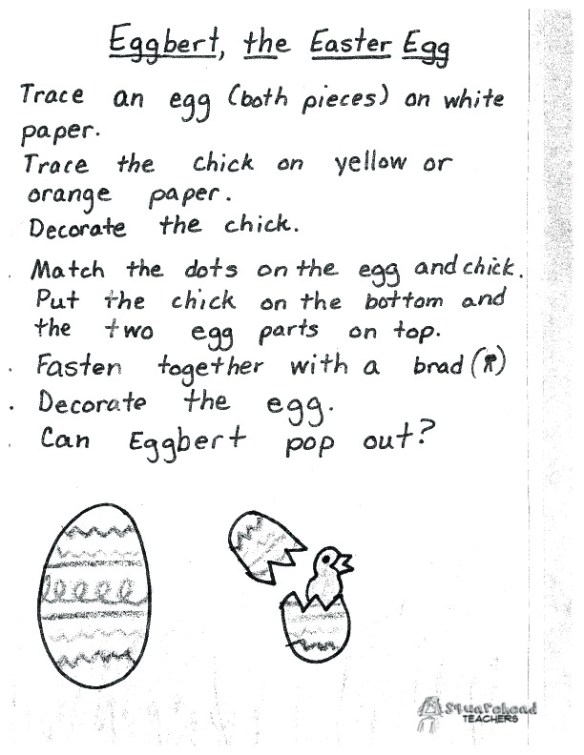 Eggbert, the Easter Egg
Trace an egg (both pieces) on white
paper.
Trace the chick on yellow or
orange paper.
Decorate the chick.
Match the dots on the egg and chick.
Put the chick on the bottom and
the two egg parts on top.
Fasten together with a brad ( )
Decorate the egg.
Can Eggbert pop out?
Squarehead
TEACHERS